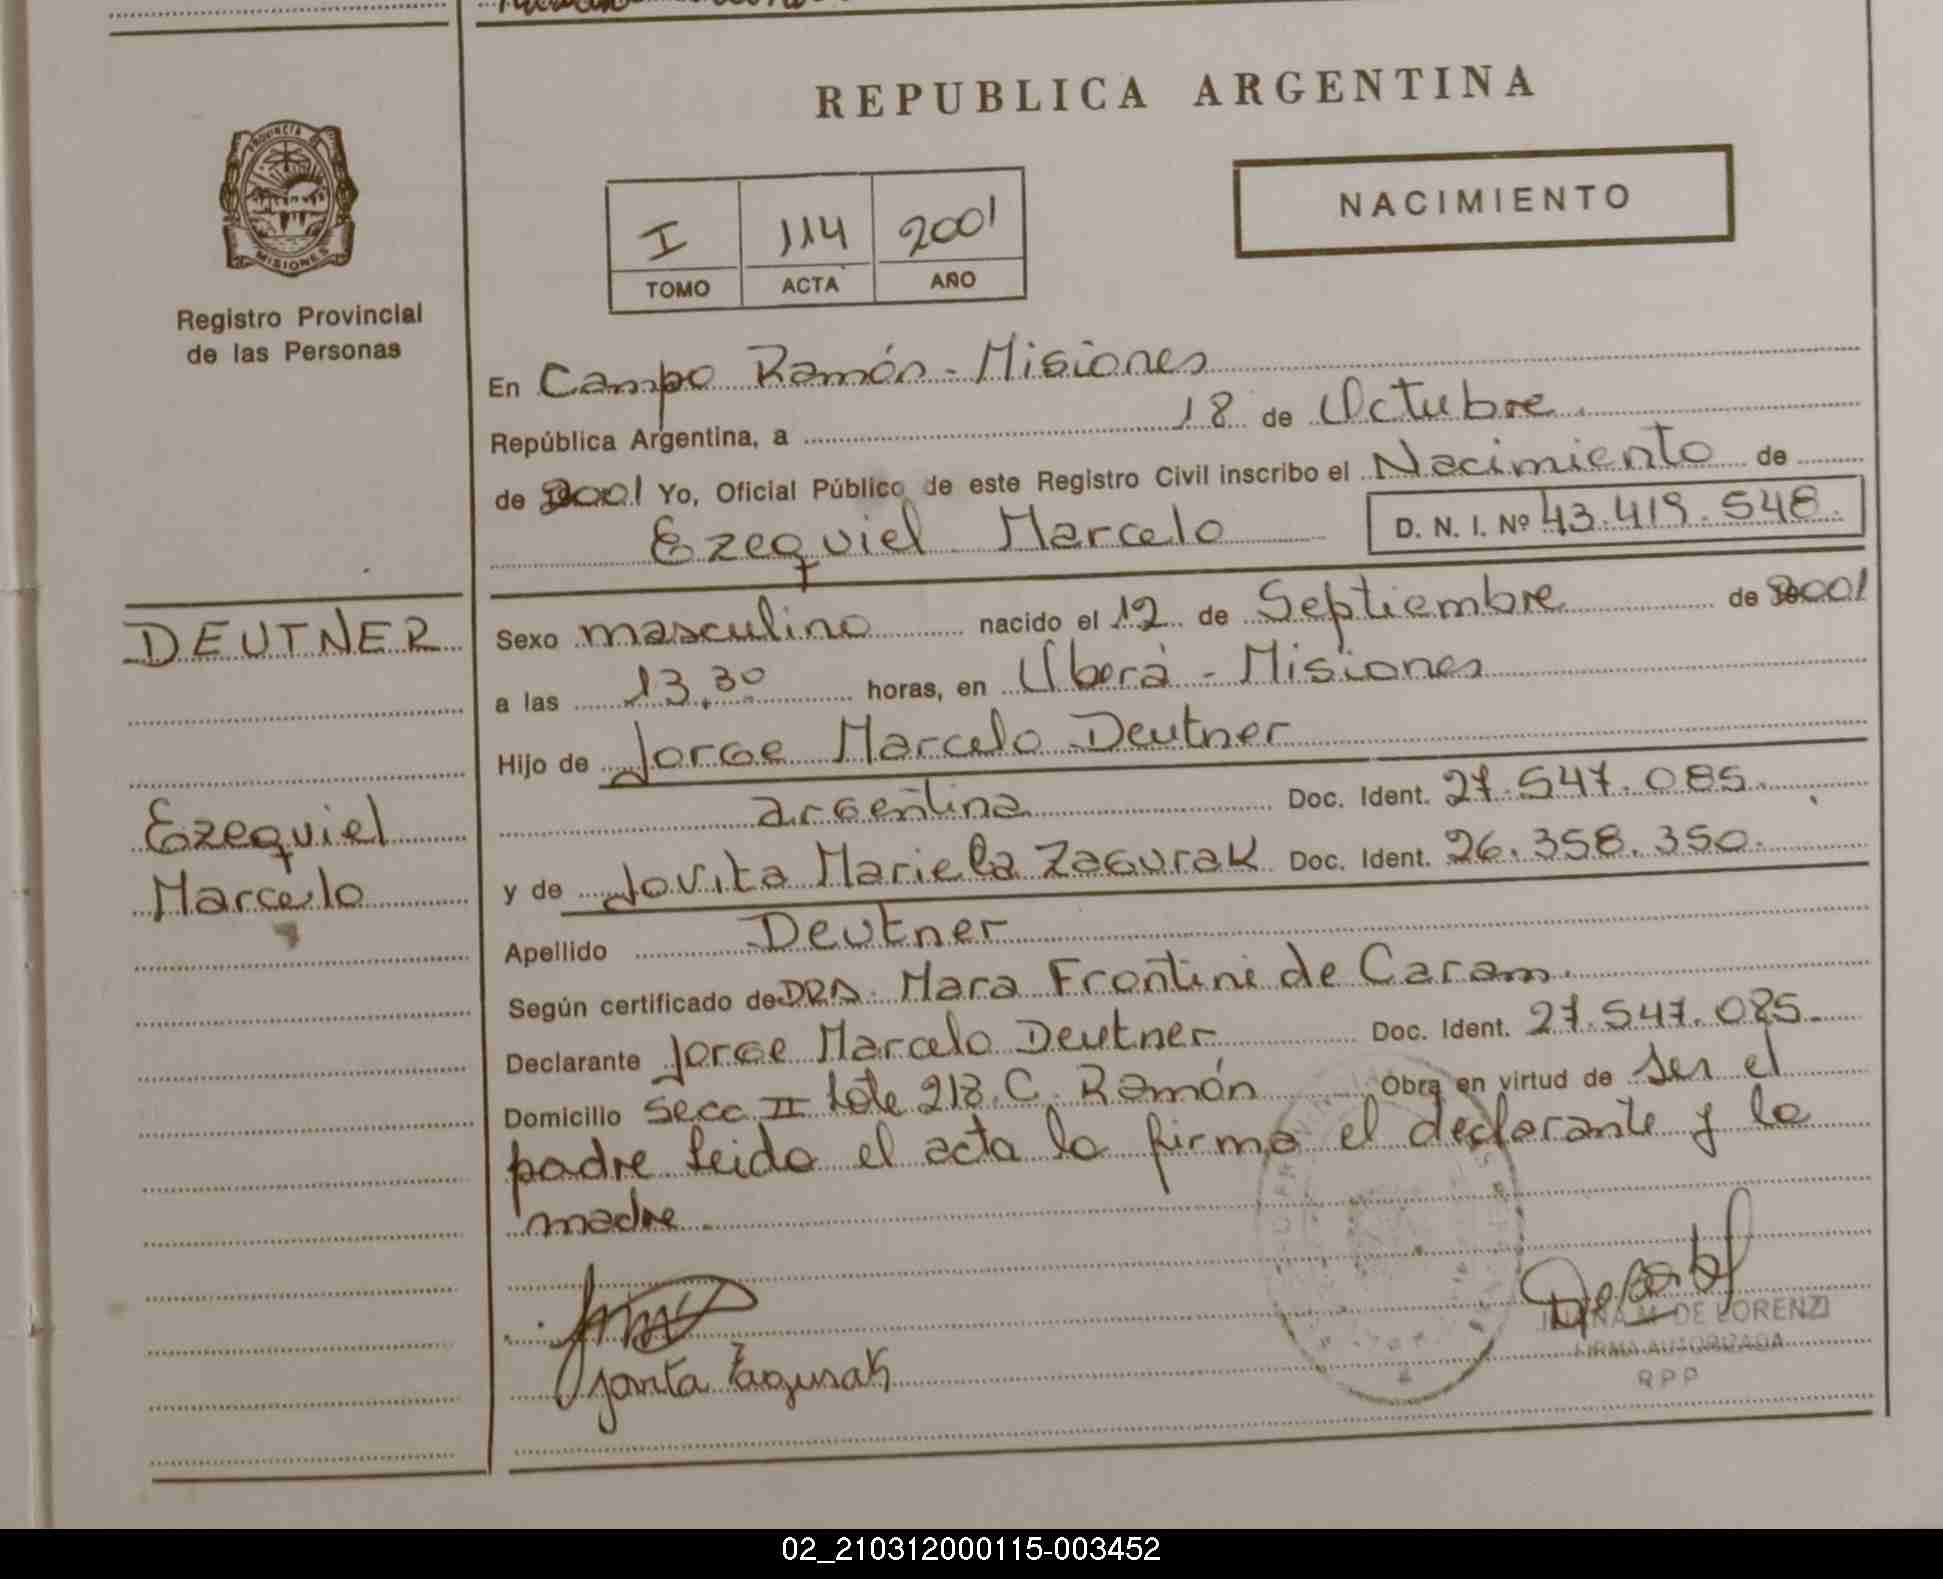 REPUBLICA ARGENTINA
NACIMIENTO
PROVINCIA DE
MISIONES
Registro Provincial
de las Personas
I 114 2001
TOMO ACTA AÑO
En Campo Ramón - Misiones
República Argentina, a 18 de Octubre
de 2001 Yo, Oficial Público de este Registro Civil inscribo el Nacimiento de
Ezequiel Marcelo D. N. I. Nº 43.419.548.
DEUTNER
Ezequiel
Marcelo
Sexo masculino nacido el 12 de Septiembre de 2001
a las 13.30 horas, en Oberá - Misiones
Hijo de Jorge Marcelo Deutner
argentina Doc. Ident. 27.547.085.
y de Jovita Mariela Zagurak Doc. Ident. 26.358.350.
Apellido Deutner
Según certificado de DRA. Mara Frontini de Caram.
Declarante Jorge Marcelo Deutner Doc. Ident. 27.547.085.
Domicilio Secc II Lote 213. C. Ramón Obra en virtud de ser el
padre leida el acta la firma el declarante y la
madre.
Jovita Zagurak
M. DE LORENZI
FIRMA AUTORIZADA
RPP
02_210312000115-003452